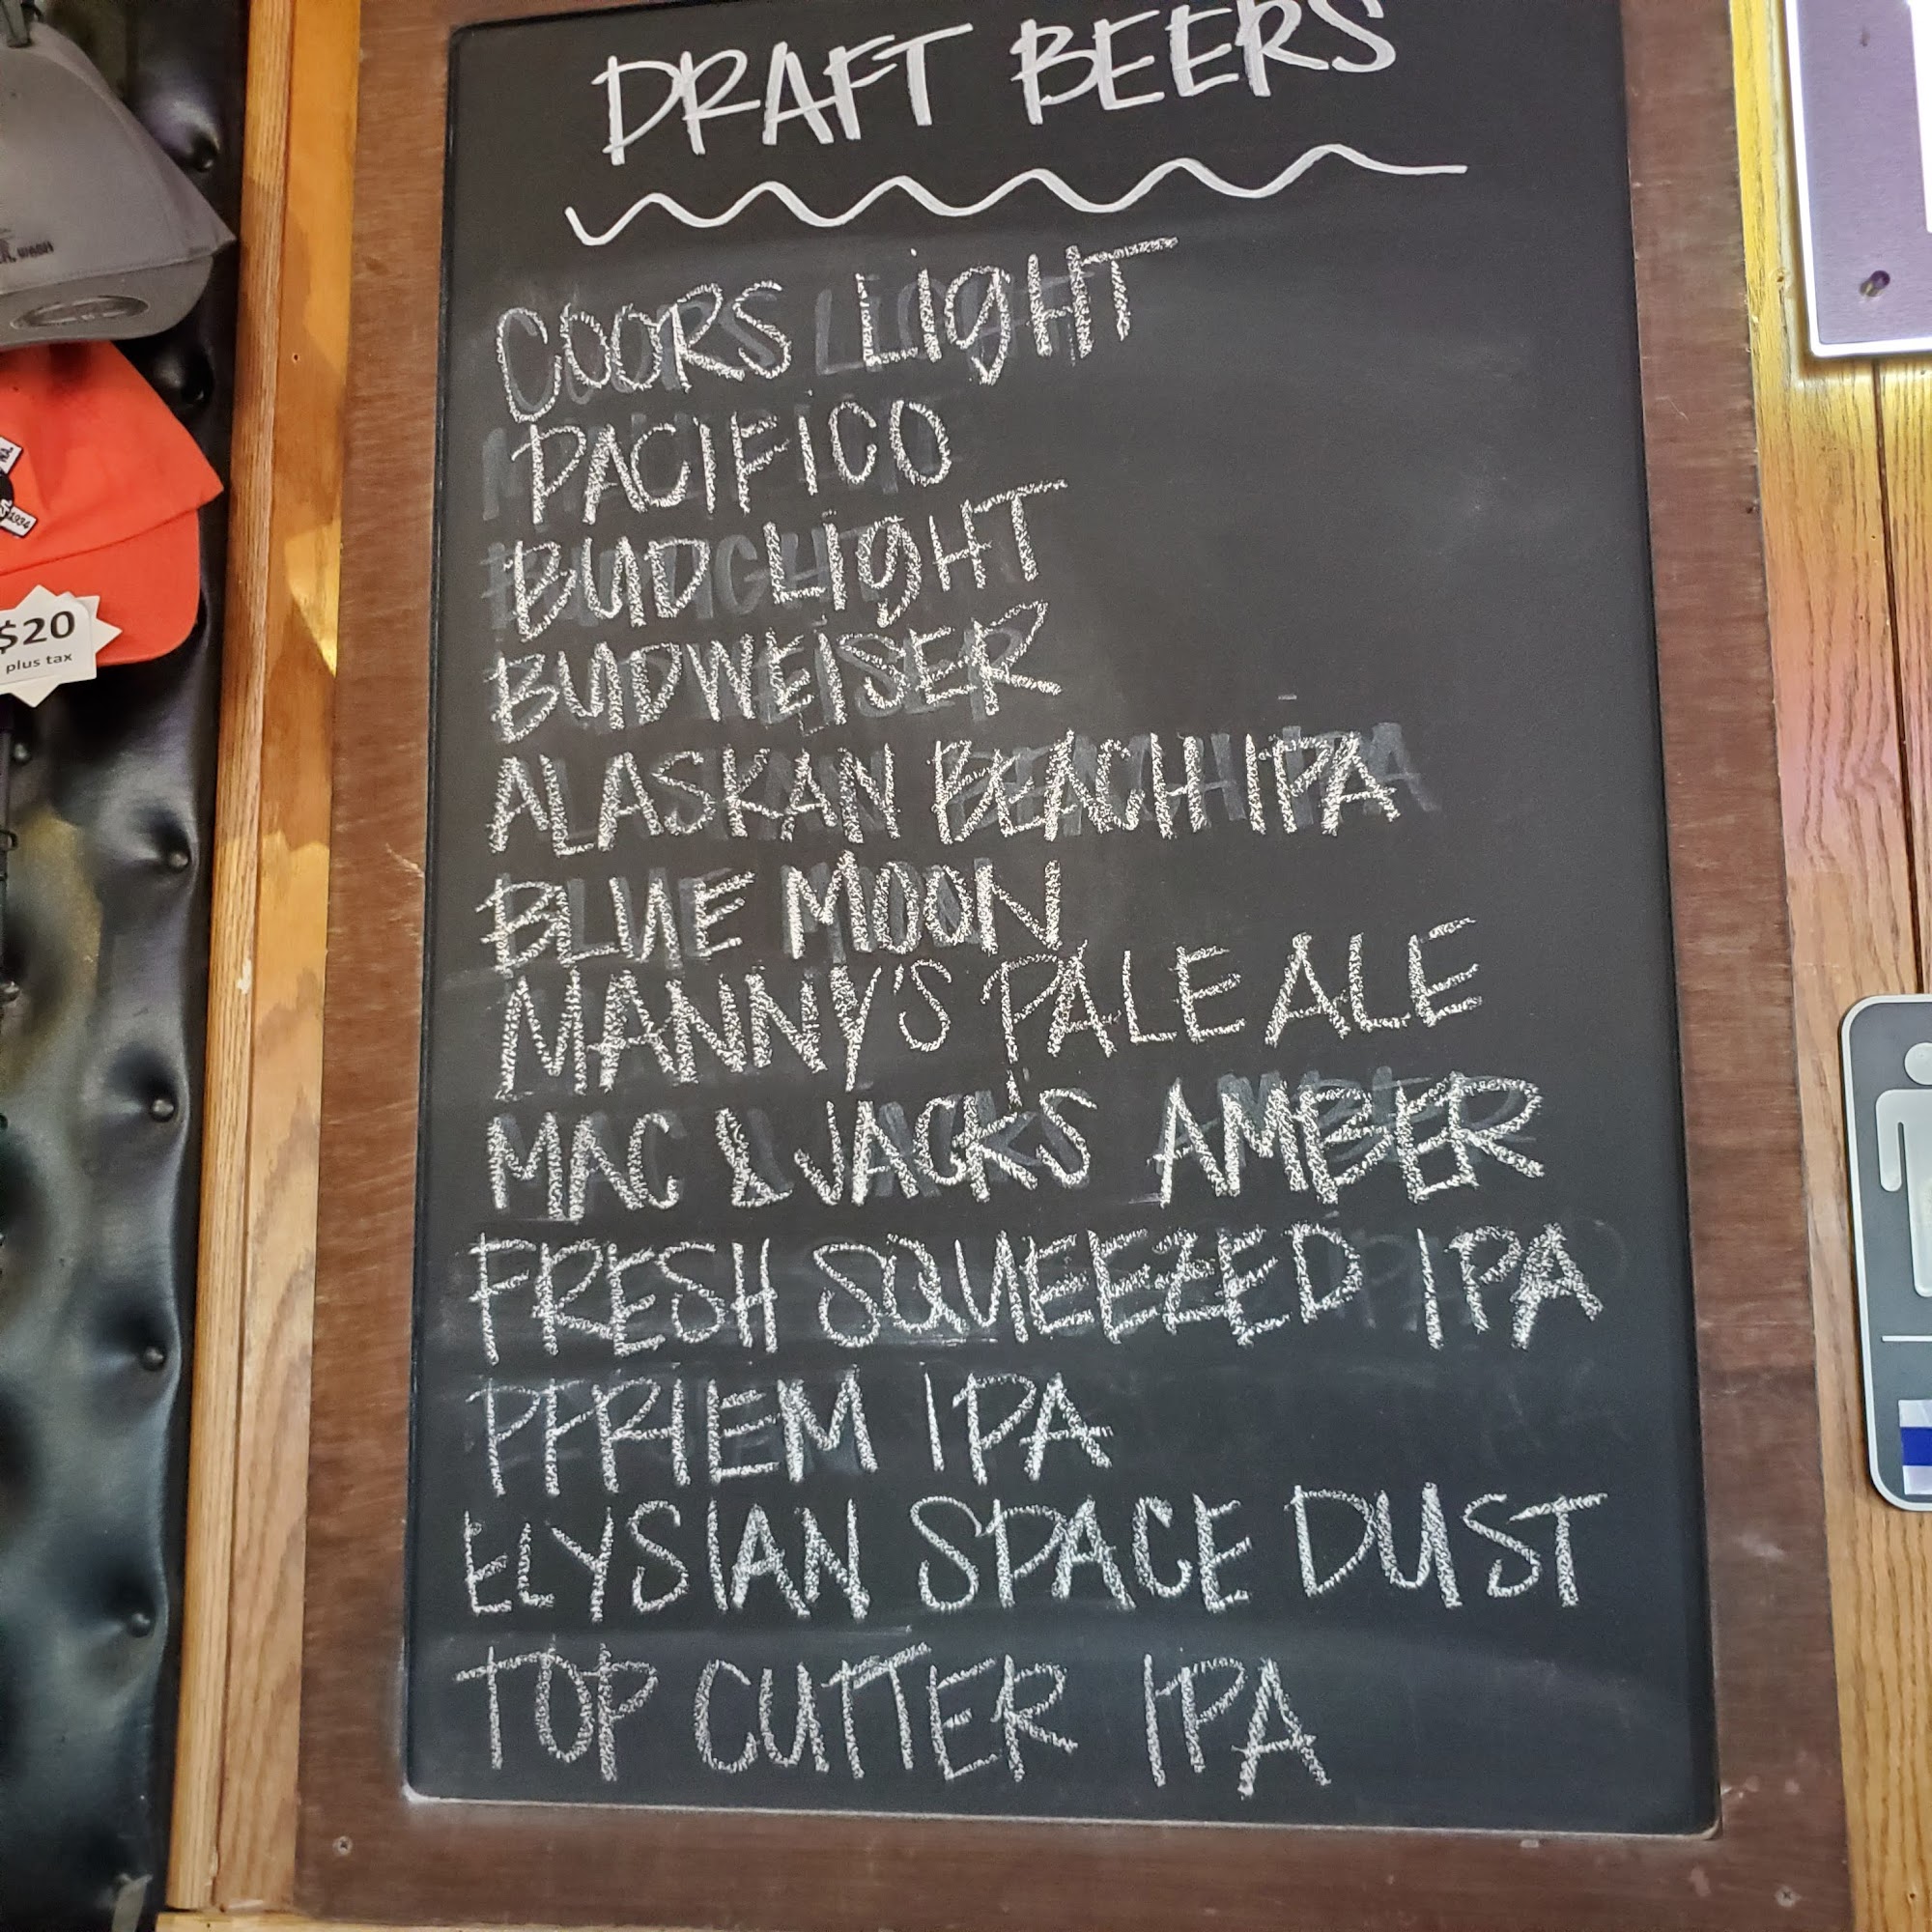 DRAFT BEERS
COORS LIGHT
PACIFICO
BUD LIGHT
BUDWEISER
ALASKAN BEACH IPA
BLUE MOON
MANNY'S PALE ALE
MAC & JACKS AMBER
FRESH SQUEEZED IPA
PFRIEM IPA
ELYSIAN SPACE DUST
TOP CUTTER IPA
WASH
1934
$20
plus tax